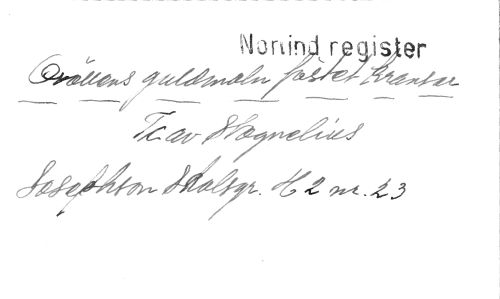 Norlind register
Qvällens guldmoln fästet kransar
T. av Stagnelius
Josephson Skolsgr. H 2 nr. 23